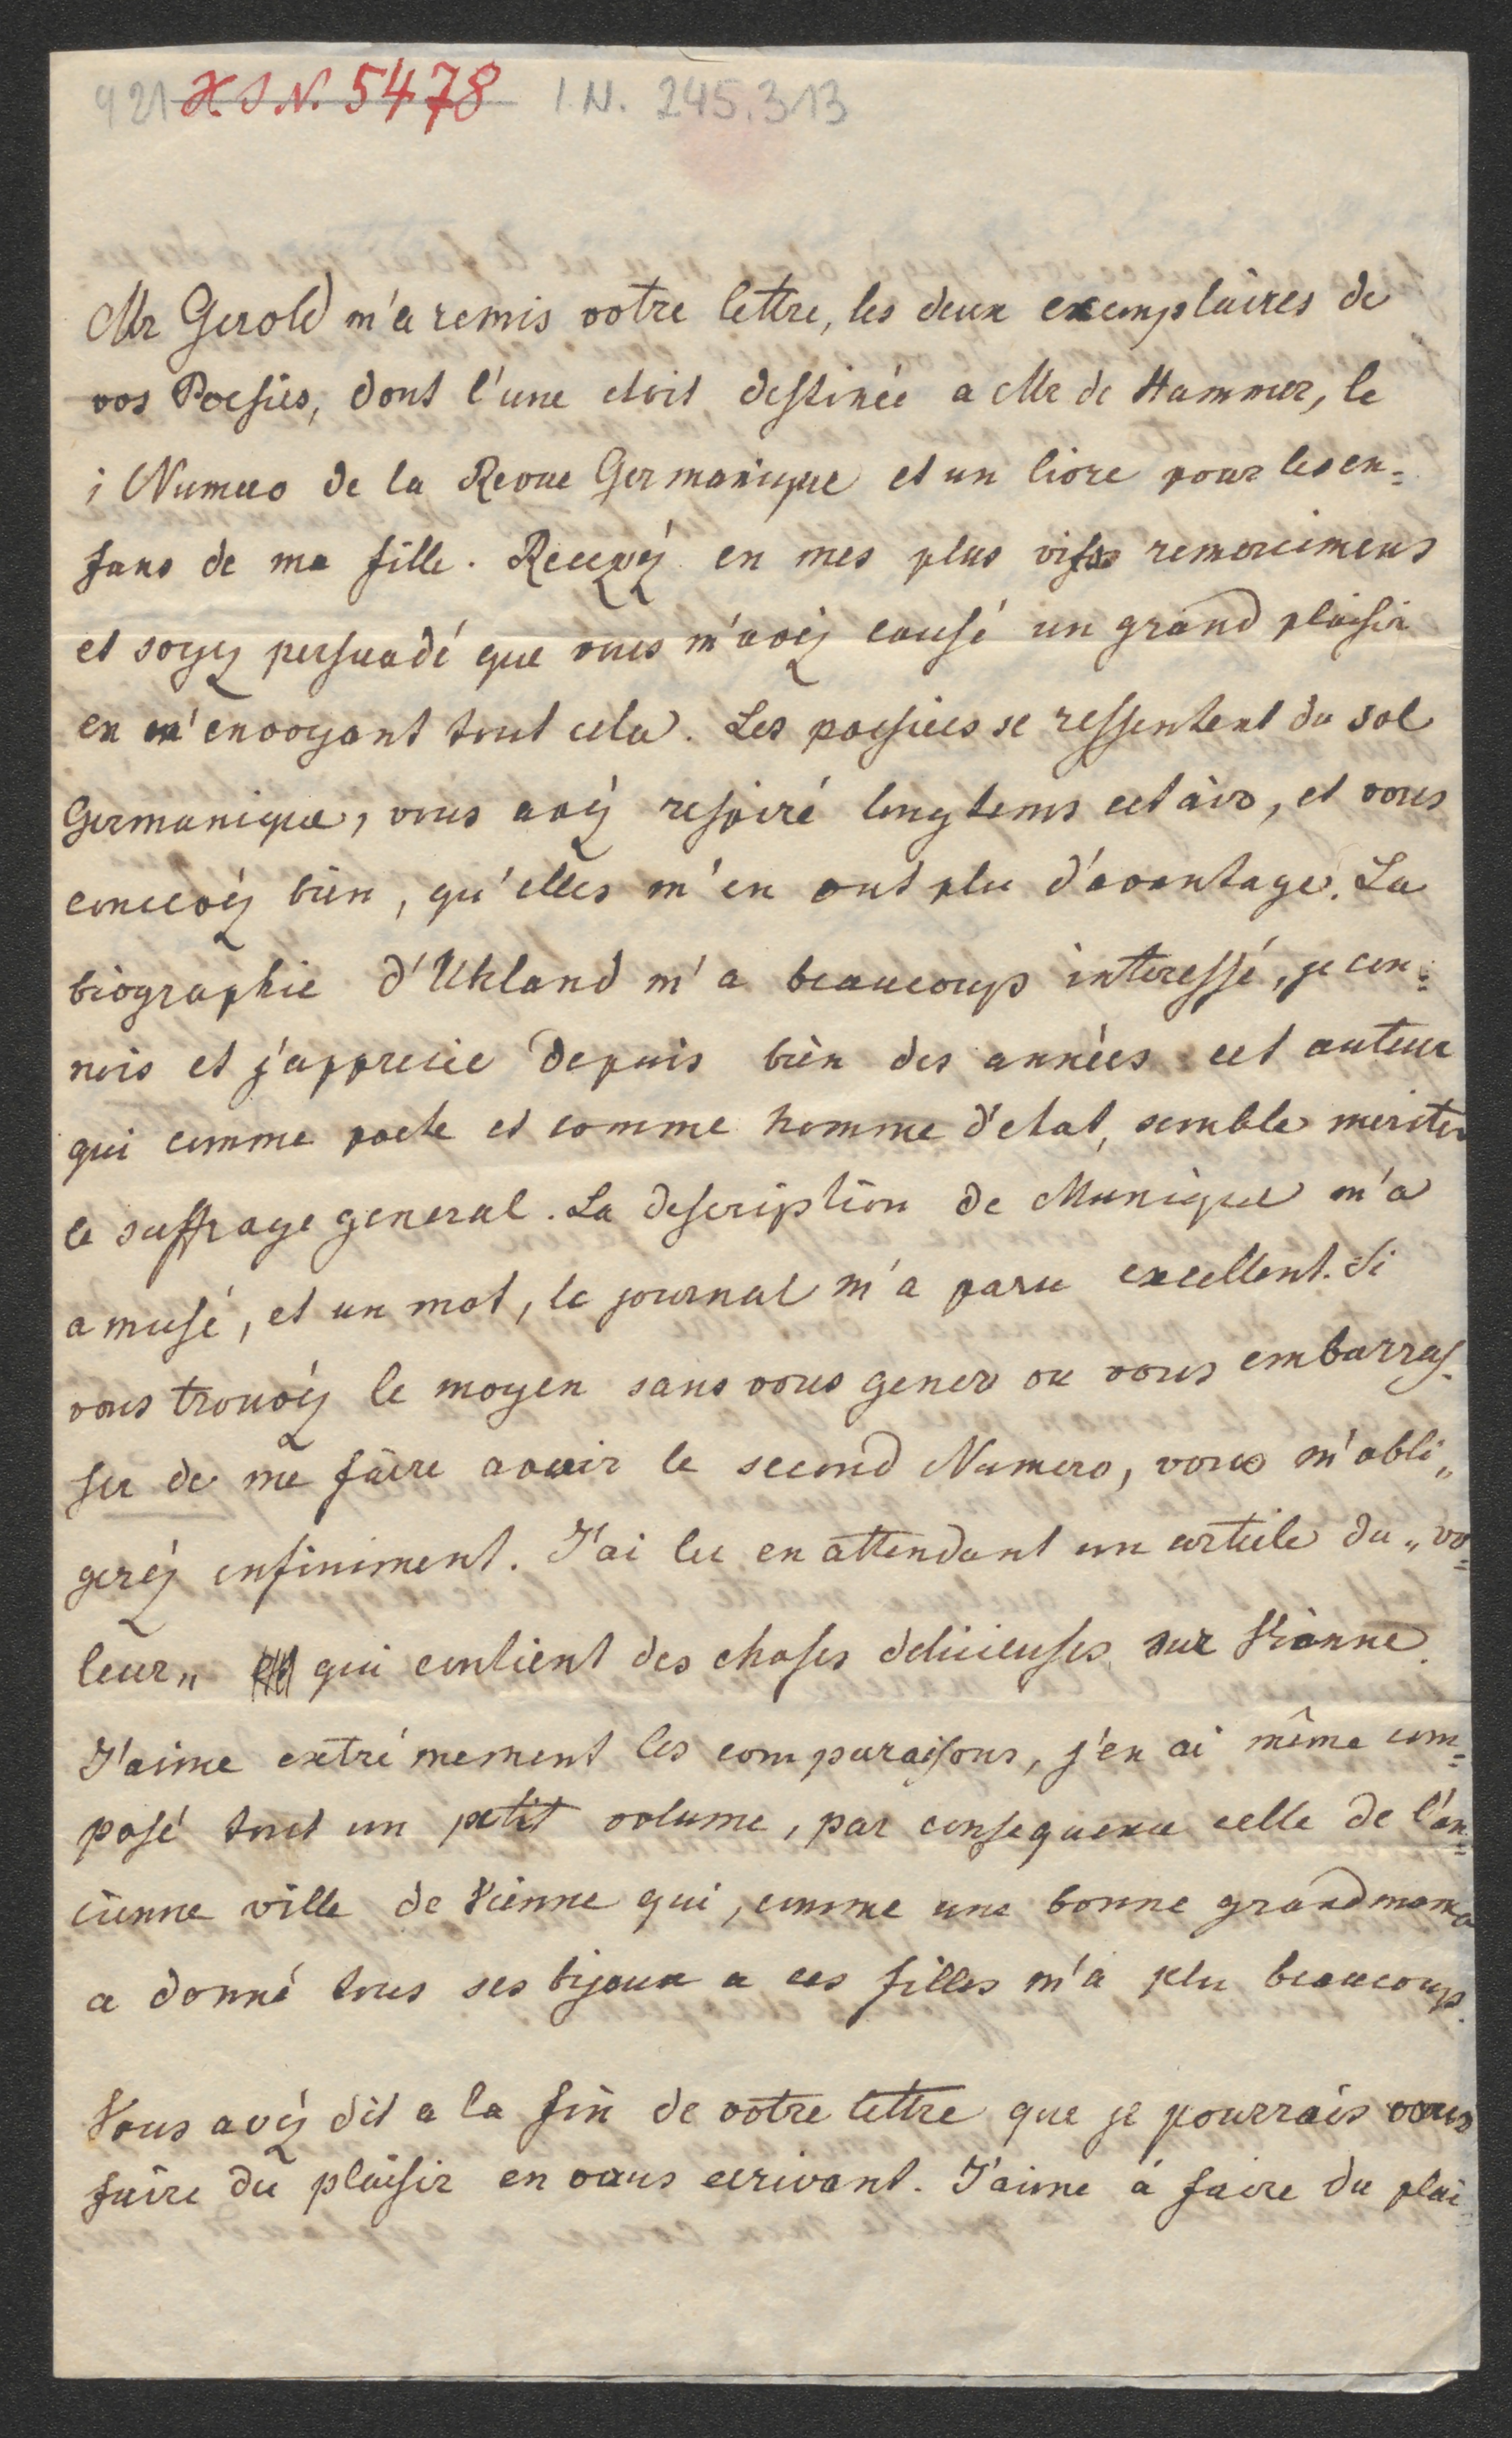 921 H. I N. 5478 I.N. 245.313
Mr Gerold m'a remis votre lettre, les deux exemplaires de
vos Poesies, dont l'une etoit destinée a Mr de Hammer, le
1 Numero de la Revue Germanique et un livre pour les en=
fans de ma fille. Recevéz en mes plus vifs remercimens
et soyez persuadé que vous m'avéz causé un grand plaisir
en m'envoyant tout cela. Les poesies se ressentent du sol
Germanique, vous avéz respiré longtems cet air, et vous
concevéz bien, qu'elles m'en ont plu d'avantage. La
biographie d'Uhland m'a beaucoup interessé, je con=
nois et j'apprecie depuis bien des années cet auteur
qui comme poete et comme homme d'etat, semble meriter
le suffrage general. La description de Munique m'a
amusé, et un mot, le journal m'a paru excellent. Si
vous trouvéz le moyen sans vous gener ou vous embarras=
ser de me faire avoir le second Numero, vous m'obli"
geréz infiniment. J'ai lu en attendant un article du „vo=
leur„ qui contient des choses delicieuses sur Vienne.
J'aime extrémement les comparaisons, j'en ai même com=
posé tout un petit volume, par consequence celle de l'an=
cienne ville de Vienne qui, comme une bonne grandmama
a donné tous ses bijoux a ces filles m'a plu beaucoup.
Vous avéz dit a la fin de votre lettre que je pourrais vous
faire du plaisir en vous ecrivant. J'aime à faire du plai=